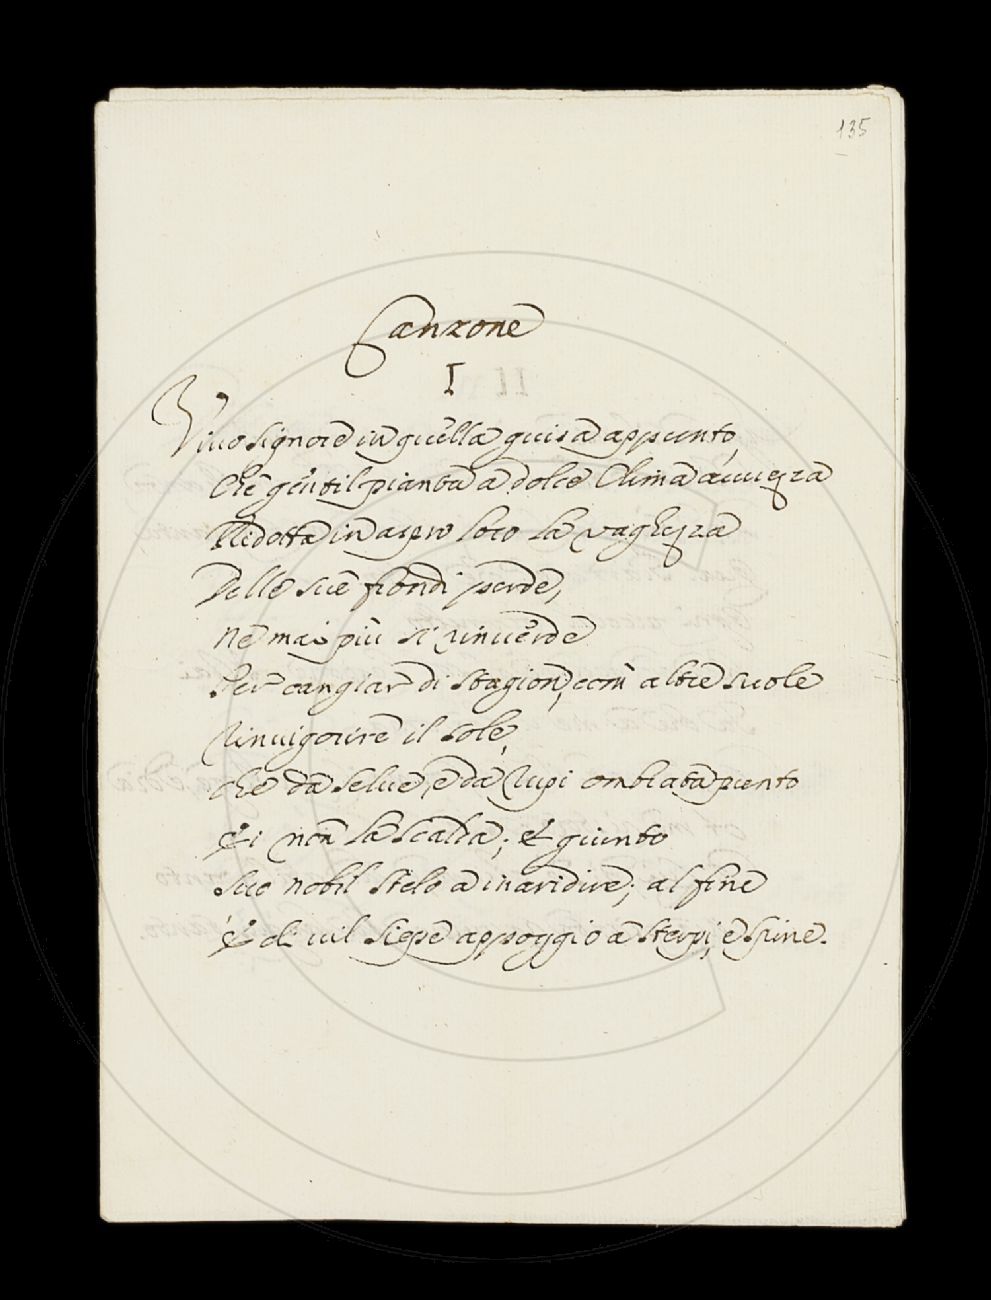 135
Canzone
I
Viuo Signore in quella guisa appunto,
Che gentil pianta a dolce Clima auuezza
Ridotta in aspro loco la vaghezza
Delle sue frondi perde,
ne mai più si rinuerde
Per cangiar di stagion, com altre suole
rinuigorire il sole,
che da selue, e da rupi ombrata punto
Ei non la scalda; e giunto
suo nobil stelo a inaridire; al fine
È di uil siepe appoggio a sterpi, e spine.